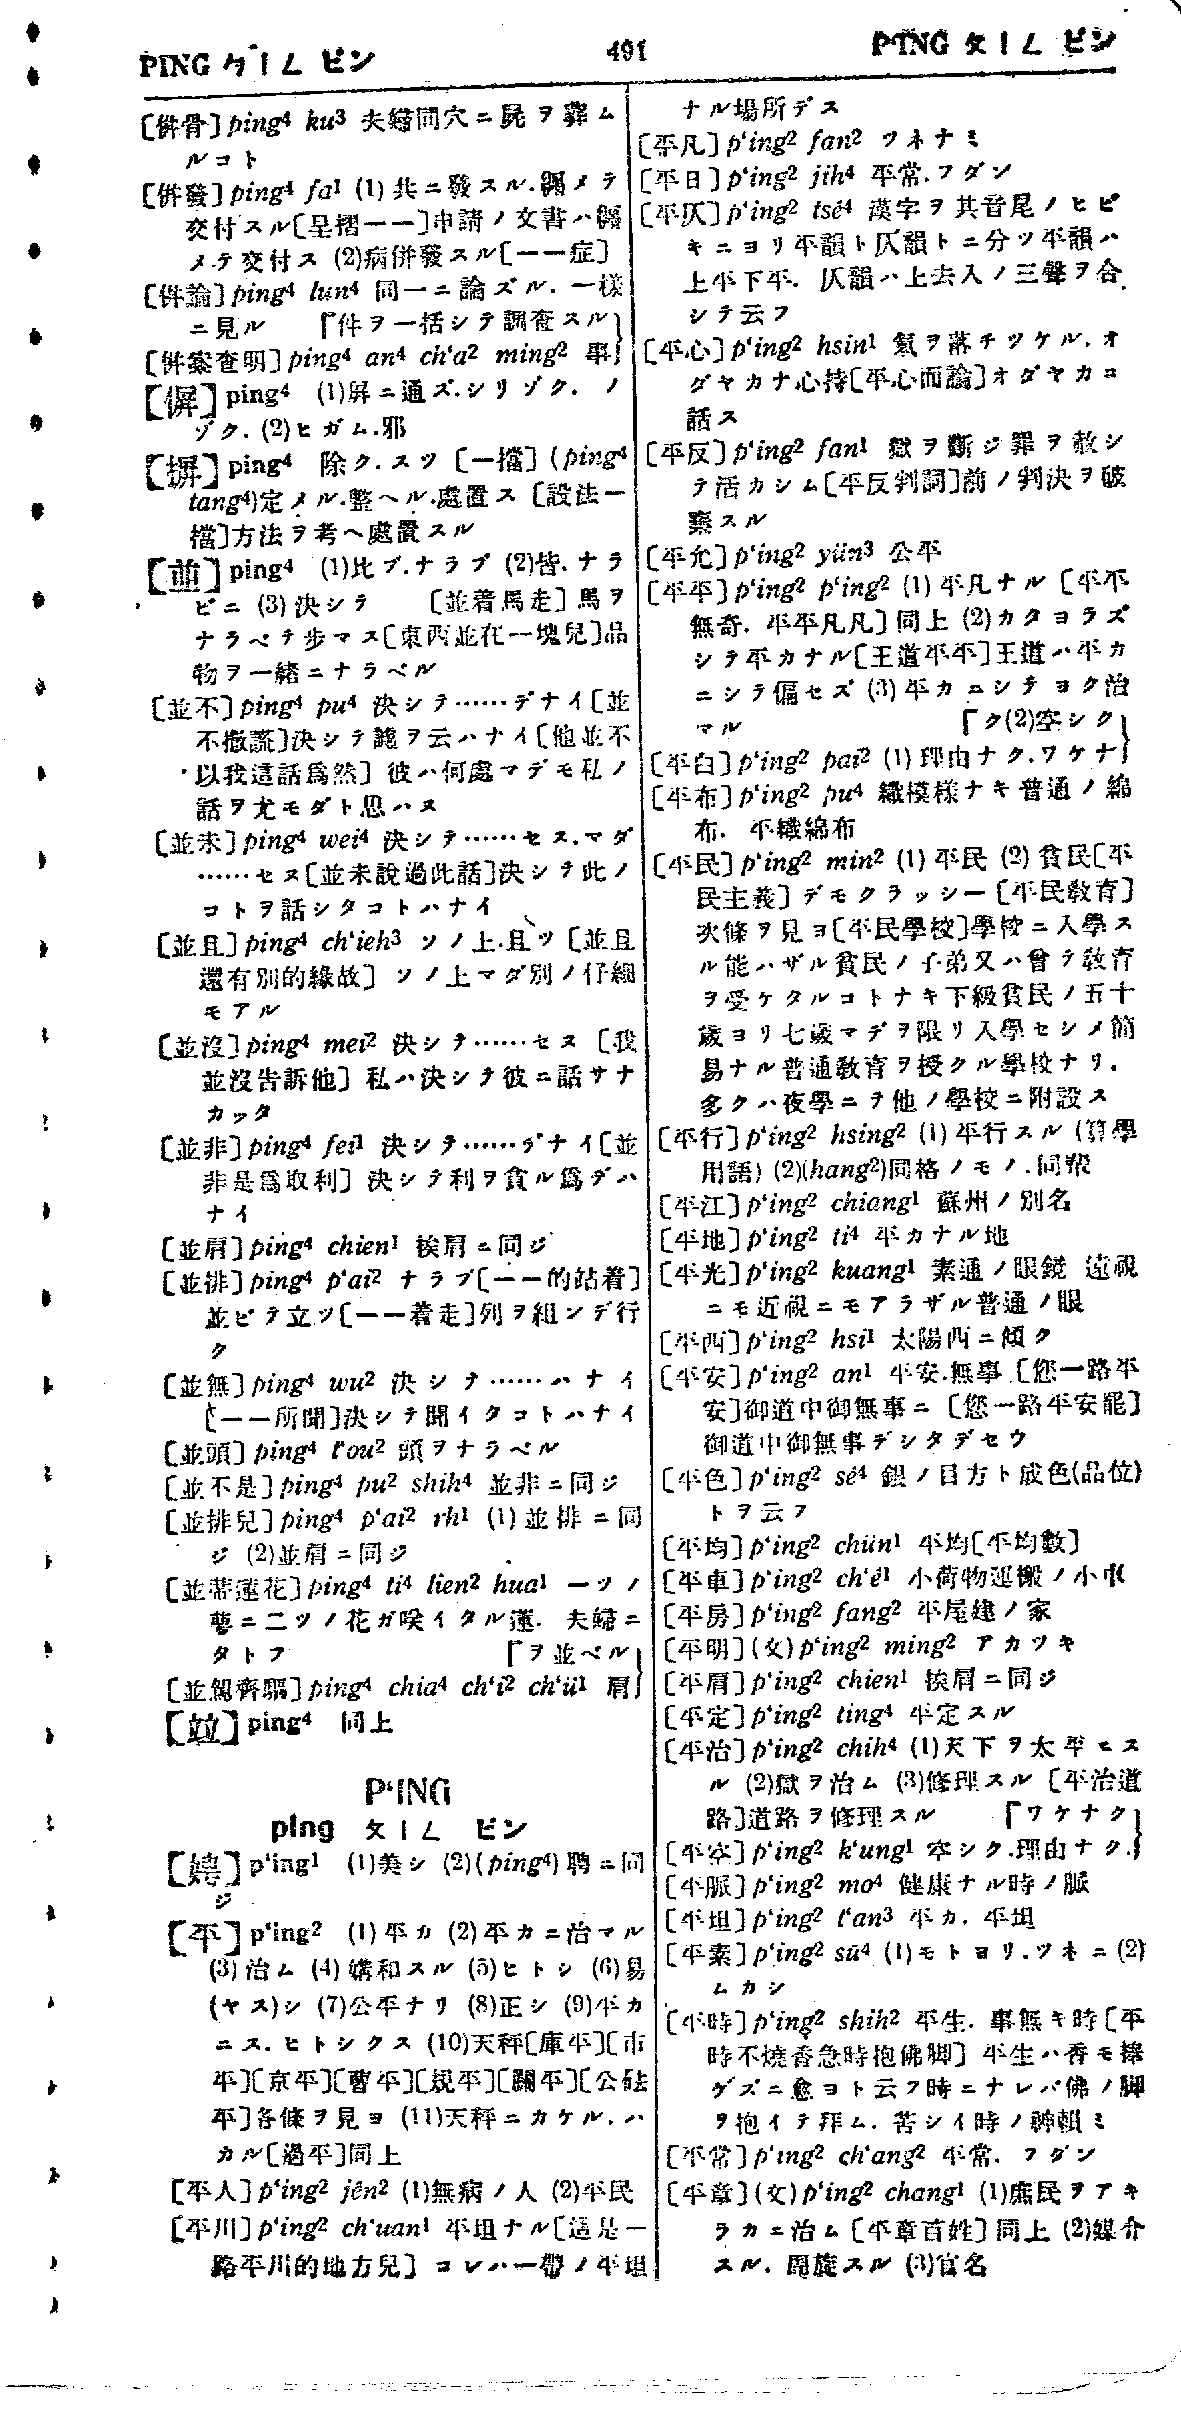 PING ㄅㄧㄥ ピン
491
P'ING ㄆㄧㄥ ピン
[併骨] ping4 ku3 夫婦同穴ニ屍ヲ葬ム
ルコト
[併發] ping4 fa1 (1) 共ニ發スル.纒メテ
交付スル[呈摺一一]申請ノ文書ハ纒
メテ交付ス (2)病併發スル[一一症]
[併論] ping4 lun4 同一ニ論ズル. 一樣
ニ見ル 「件ヲ一括シテ調査スル
[併案査明] ping4 an4 ch'a2 ming2 事
[偋] ping4 (1)屏ニ通ズ.シリゾク. ノ
ゾク. (2)ヒガム.邪
[摒] ping4 除ク.スツ [一擋] (ping4
tang4)定メル.整ヘル.處置ス [設法一
擋]方法ヲ考ヘ處置スル
[並] ping4 (1)比ブ.ナラブ (2)皆.ナラ
ビニ (3)決シテ [並着馬走] 馬ヲ
ナラベテ歩マス[東西並在一塊兒]品
物ヲ一緒ニナラベル
[並不] ping4 pu4 決シテ……デナイ[並
不撒謊]決シテ謊ヲ云ハナイ[他並不
以我這話爲然] 彼ハ何處マデモ私ノ
話ヲ尤モダト思ハヌ
[並未] ping4 wei4 決シテ……セス.マダ
……セヌ[並未說過此話]決シテ此ノ
コトヲ話シタコトハナイ
[並且] ping4 ch'ieh3 ソノ上.且ツ [並且
還有別的緣故] ソノ上マダ別ノ仔細
モアル
[並沒] ping4 mei2 決シテ……セヌ [我
並沒告訴他] 私ハ決シテ彼ニ話サナ
カッタ
[並非] ping4 fei1 決シテ……デナイ[並
非是爲取利] 決シテ利ヲ貪ル爲デハ
ナイ
[並肩] ping4 chien1 挨肩ニ同ジ
[並排] ping4 p'ai2 ナラブ[一一的站着]
並ビテ立ツ[一一着走]列ヲ組ンデ行
ク
[並無] ping4 wu2 決シテ……ハナイ
[一一所聞]決シテ聞イタコトハナイ
[並頭] ping4 t'ou2 頭ヲナラベル
[並不是] ping4 pu2 shih4 並非ニ同ジ
[並排兒] ping4 p'ai2 rh1 (1)並排ニ同
ジ (2)並肩ニ同ジ
[並蒂蓮花] ping4 ti4 lien2 hua1 一ツノ
蕚ニ二ツノ花ガ咲イタル蓮. 夫婦ニ
タトフ 「ヲ並ベル
[並駕齊驅] ping4 chia4 ch'i2 ch'ü1 肩
[竝] ping4 同上
P'ING
ping ㄆㄧㄥ ピン
[娉] p'ing1 (1)美シ (2)(ping4) 聘ニ同
ジ
[平] p'ing2 (1)平カ (2)平カニ治マル
(3)治ム (4)媾和スル (5)ヒトシ (6)易
(ヤス)シ (7)公平ナリ (8)正シ (9)平カ
ニス.ヒトシクス (10)天秤[庫平][市
平][京平][曹平][規平][關平][公砝
平]各條ヲ見ヨ (11)天秤ニカケル.ハ
カル[過平]同上
[平人] p'ing2 jên2 (1)無病ノ人 (2)平民
[平川] p'ing2 ch'uan1 平坦ナル[這是一
路平川的地方兒] コレハ一帶ノ平坦
ナル場所デス
[平凡] p'ing2 fan2 ツネナミ
[平日] p'ing2 jih4 平常.フダン
[平仄] p'ing2 tsê4 漢字ヲ其音尾ノヒビ
キニヨリ平韻ト仄韻トニ分ツ平韻ハ
上平下平. 仄韻ハ上去入ノ三聲ヲ合
シテ云フ
[平心] p'ing2 hsin1 氣ヲ落チツケル.オ
ダヤカナ心持[平心而論]オダヤカニ
話ス
[平反] p'ing2 fan1 獄ヲ斷ジ罪ヲ赦シ
テ活カシム[平反判詞]前ノ判決ヲ破
棄スル
[平允] p'ing2 yün3 公平
[平平] p'ing2 p'ing2 (1)平凡ナル [平平
無奇. 平平凡凡] 同上 (2)カタヨラズ
シテ平カナル[王道平平]王道ハ平カ
ニシテ偏セズ (3)平カニシテヨク治
マル 「ク(2)空シク
[平白] p'ing2 pai2 (1)理由ナク.ワケナ
[平布] p'ing2 pu4 織模樣ナキ普通ノ綿
布. 平織綿布
[平民] p'ing2 min2 (1)平民 (2)貧民[平
民主義] デモクラッシー[平民敎育]
次條ヲ見ヨ[平民學校]學校ニ入學ス
ル能ハザル貧民ノ子弟又ハ曾テ敎育
ヲ受ケタルコトナキ下級貧民ノ五十
歲ヨリ七歲マデヲ限リ入學セシメ簡
易ナル普通敎育ヲ授クル學校ナリ.
多クハ夜學ニテ他ノ學校ニ附設ス
[平行] p'ing2 hsing2 (1)平行スル (算學
用語) (2)(hang2)同格ノモノ.同輩
[平江] p'ing2 chiang1 蘇州ノ別名
[平地] p'ing2 ti4 平カナル地
[平光] p'ing2 kuang1 素通ノ眼鏡 遠視
ニモ近視ニモアラザル普通ノ眼
[平西] p'ing2 hsi1 太陽西ニ傾ク
[平安] p'ing2 an1 平安.無事 [您一路平
安]御道中御無事ニ [您一路平安罷]
御道中御無事デシタデセウ
[平色] p'ing2 sê4 銀ノ目方ト成色(品位)
トヲ云フ
[平均] p'ing2 chün1 平均[平均數]
[平車] p'ing2 ch'ê1 小荷物運搬ノ小車
[平房] p'ing2 fang2 平屋建ノ家
[平明] (文) p'ing2 ming2 アカツキ
[平肩] p'ing2 chien1 挨肩ニ同ジ
[平定] p'ing2 ting4 平定スル
[平治] p'ing2 chih4 (1)天下ヲ太平ニス
ル (2)獄ヲ治ム (3)修理スル [平治道
路]道路ヲ修理スル 「ワケナク
[平空] p'ing2 k'ung1 空シク.理由ナク.
[平脈] p'ing2 mo4 健康ナル時ノ脈
[平坦] p'ing2 t'an3 平カ. 平坦
[平素] p'ing2 sū4 (1)モトヨリ.ツネニ (2)
ムカシ
[平時] p'ing2 shih2 平生. 事無キ時[平
時不燒香急時抱佛脚] 平生ハ香モ捧
ゲズニ愈ヨト云フ時ニナレバ佛ノ脚
ヲ抱イテ拜ム. 苦シイ時ノ神賴ミ
[平常] p'ing2 ch'ang2 平常. フダン
[平章] (文) p'ing2 chang1 (1)庶民ヲアキ
ラカニ治ム [平章百姓] 同上 (2)媒介
スル. 周旋スル (3)官名